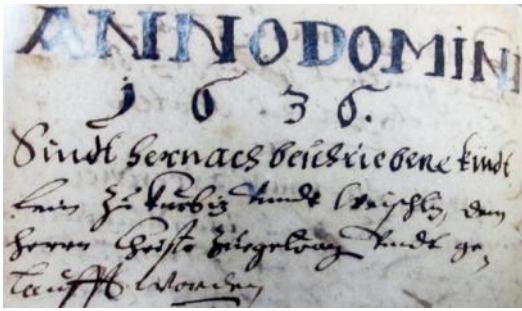 ANNO DOMINI
1636.
Sindt hernach beschriebene kindt
lein zu Kürbiz undt Weischliz dem
Herrn Christo zuegetragen undt ge-
taufft worden